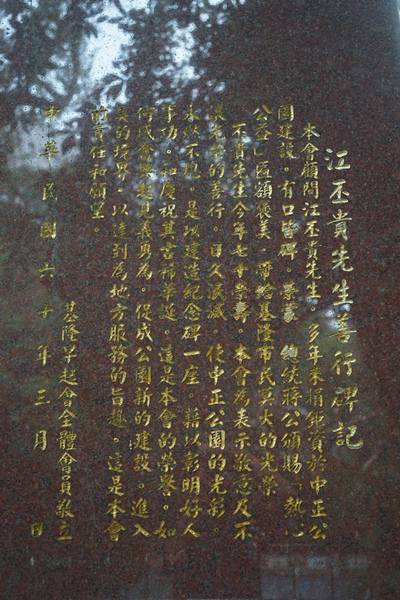 江丕貴先生善行碑記
本會顧問江丕貴先生。多年來捐獻資於中正公
園建設。有口皆碑。榮蒙 總統蔣公頒賜。熱心
公益匾額褒美。帶給基隆市民莫大的光榮
丕貴先生今年七十榮壽。本會為表示敬意及不
使先生的善行。日久泯滅。使中正公園的光彩。
永燃不息。是以建造紀念碑一座。藉以彰明好人
事功。和慶祝其古稀華誕。這是本會的榮譽。如
何成發與起見義勇為。促成公園新的建設。進入
美的境界。以達到為地方服務的旨趣。這是本會
前責任和願望。
基隆早起會全體會員敬立
中華民國六十年三月 日